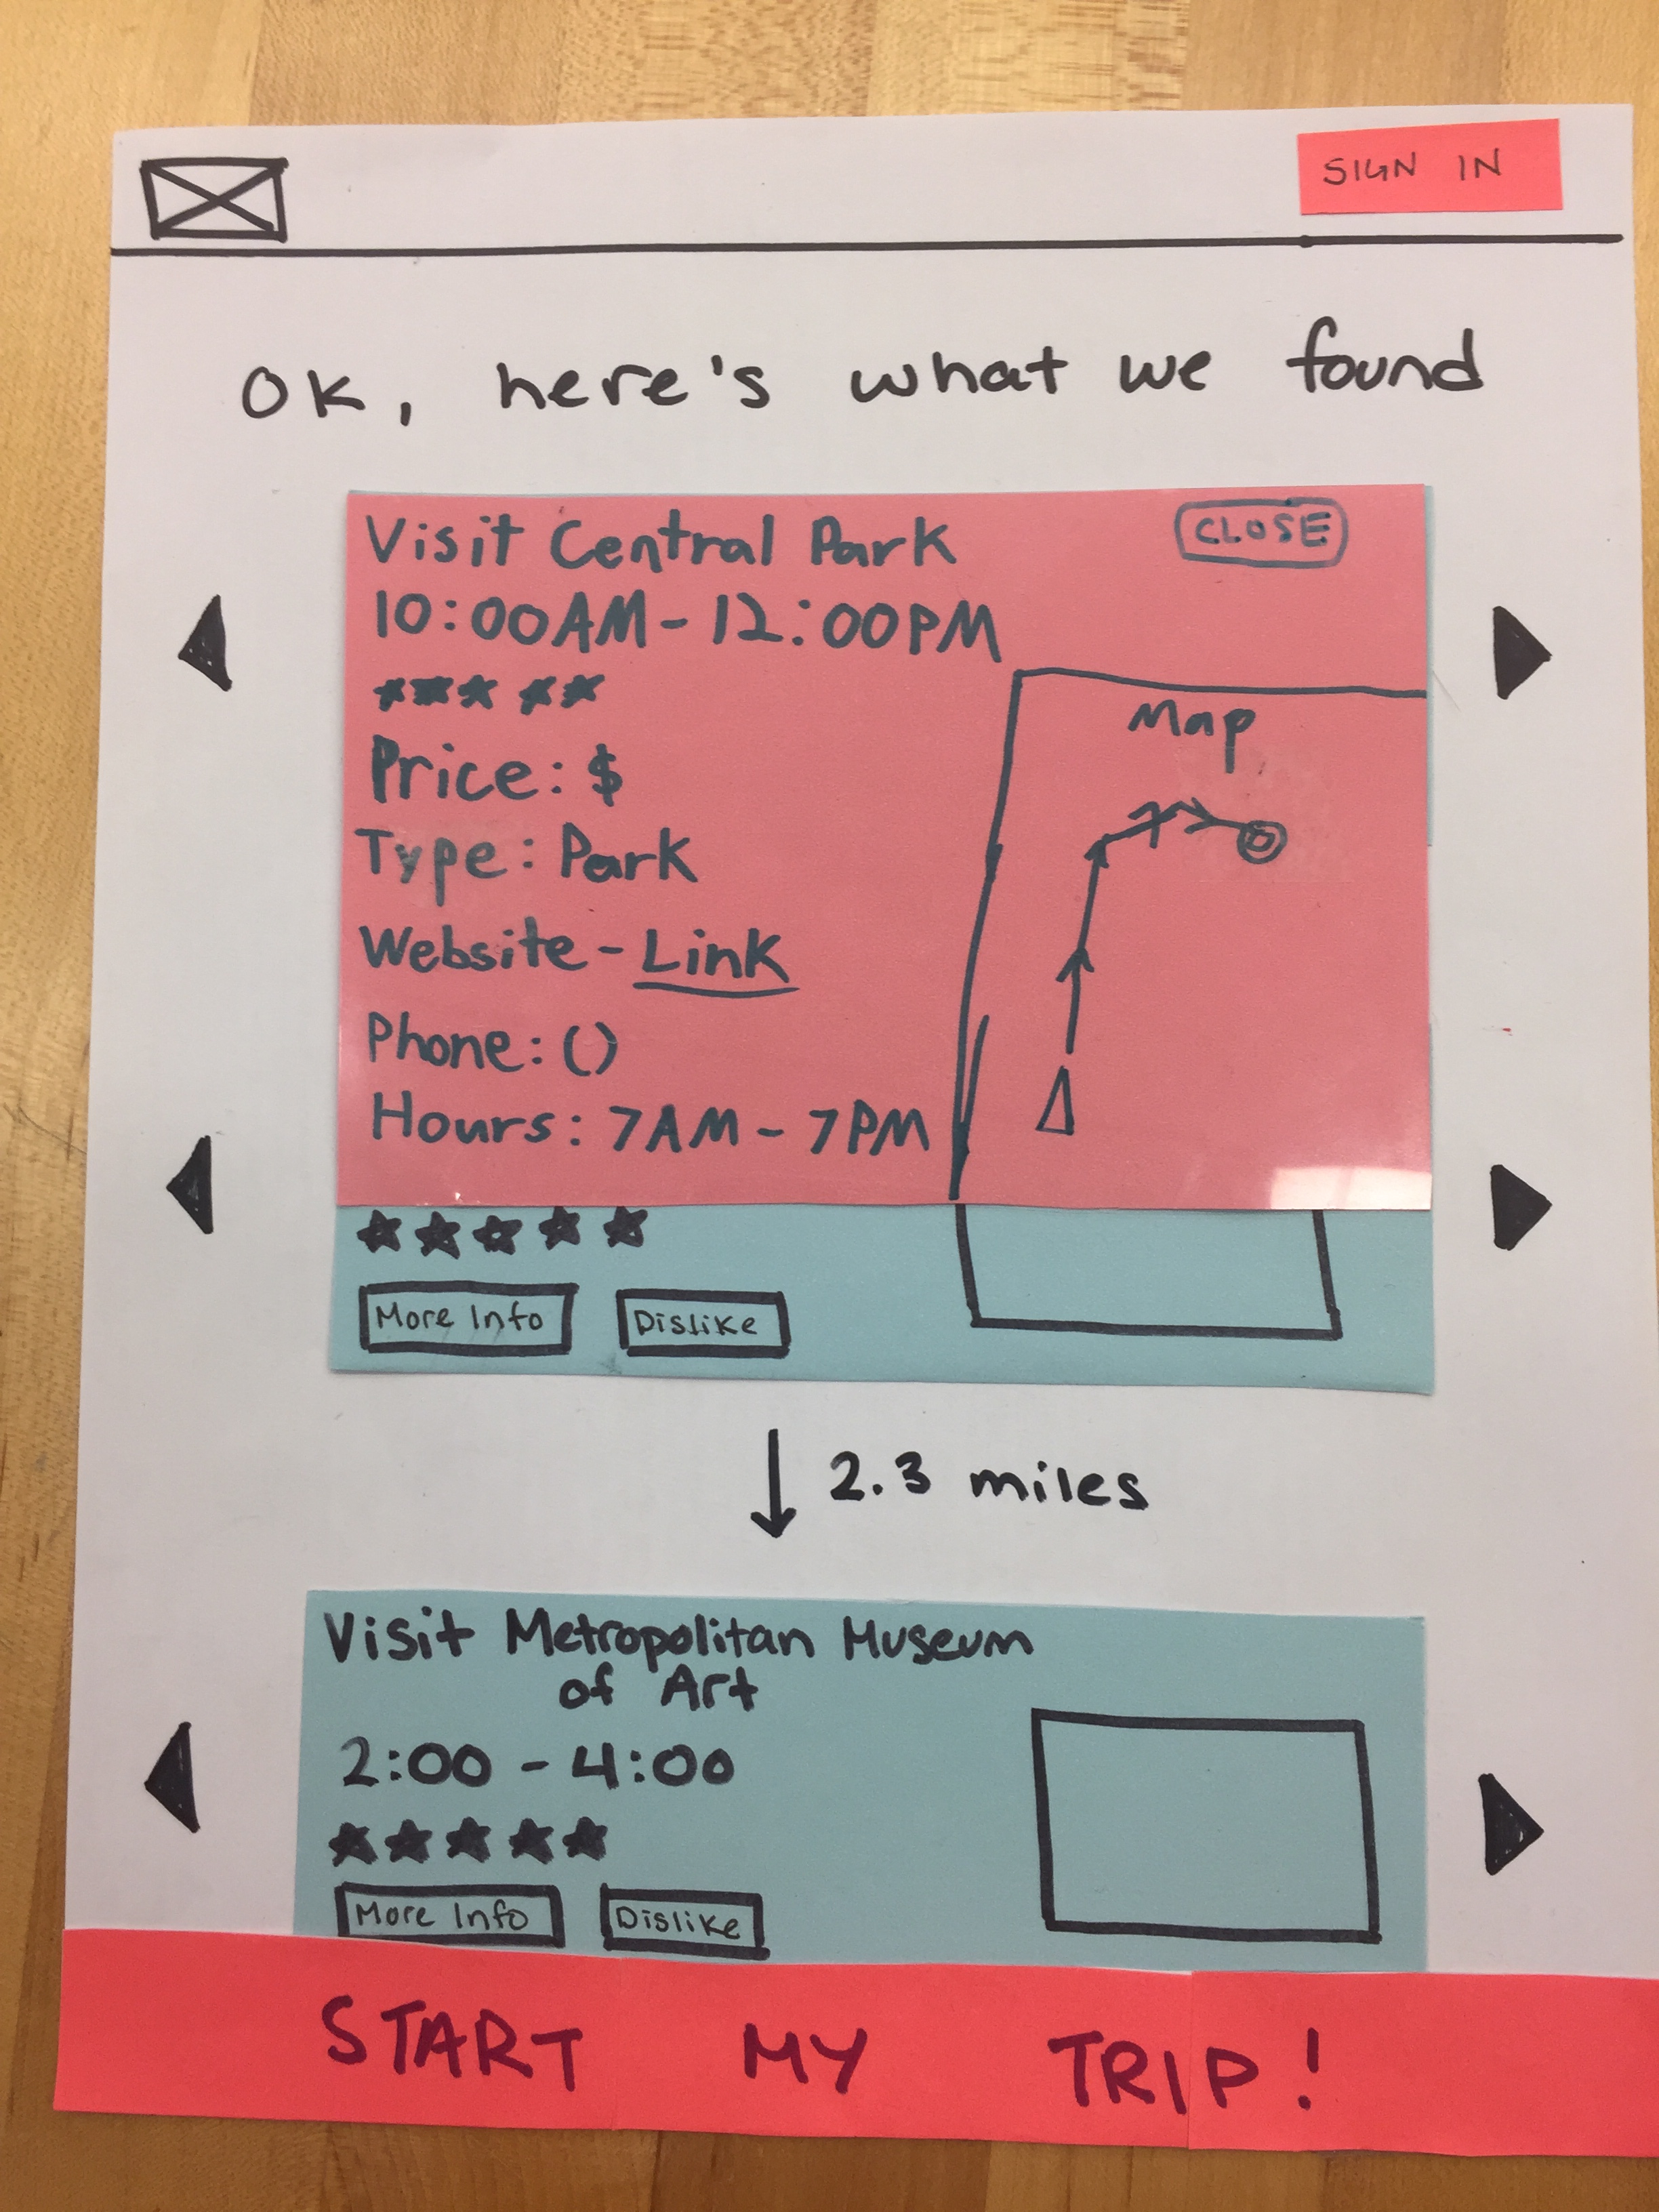 SIGN IN
OK, here's what we found
Visit Central Park
CLOSE
10:00AM - 12:00PM
Map
Price: $
Type: Park
Website - Link
Phone: ()
Hours: 7AM - 7PM
More Info
Dislike
2.3 miles
Visit Metropolitan Museum
of Art
2:00 - 4:00
More Info
Dislike
START MY TRIP!